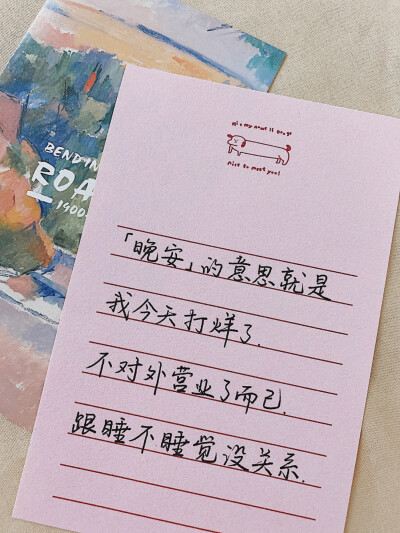 BENDIN
ROA
1900
Hi : my name is
nice to meet you!
「晚安」的意思就是
我今天打烊了.
不对外营业了而已.
跟睡不睡觉没关系.